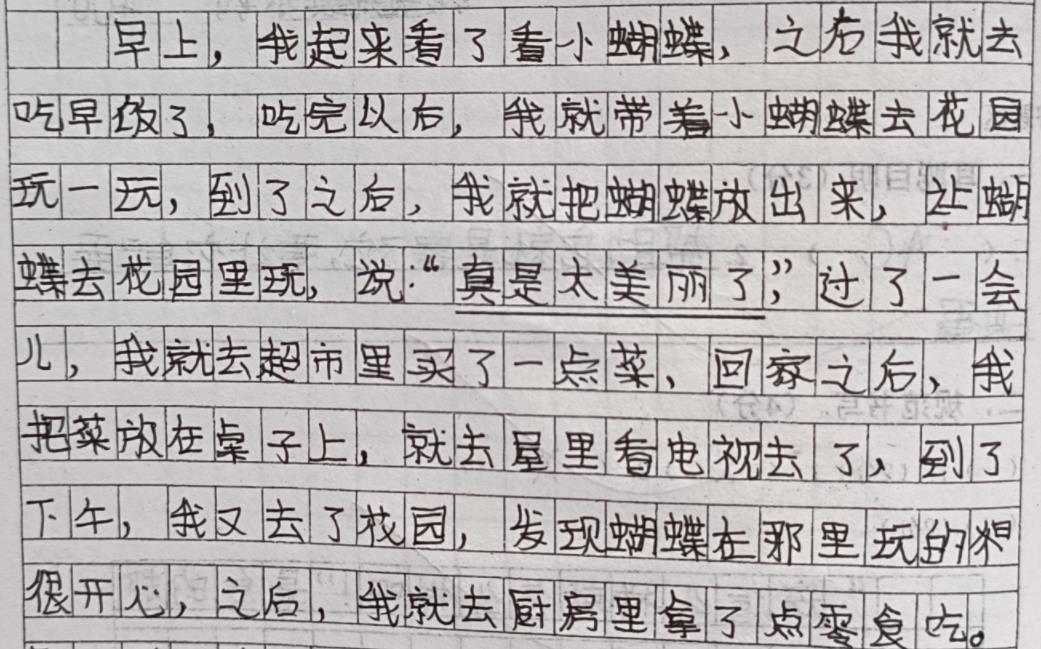 早上，我起来看了看小蝴蝶，之后我就去
吃早饭了，吃完以后，我就带着小蝴蝶去花园
玩一玩，到了之后，我就把蝴蝶放出来，让蝴
蝶去花园里玩，说：“真是太美丽了，”过了一会
儿，我就去超市里买了一点菜、回家之后，我
把菜放在桌子上，就去屋里看电视去了，到了
下午，我又去了花园，发现蝴蝶在那里玩的
很开心，之后，我就去厨房里拿了点零食吃。